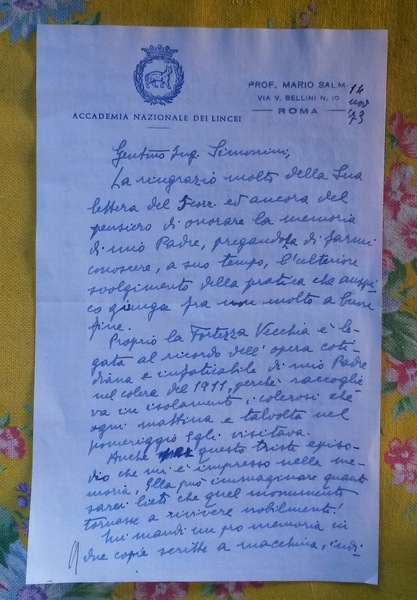 ACCADEMIA NAZIONALE DEI LINCEI
PROF. MARIO SALMI
VIA V. BELLINI N. 10
ROMA
14
73
Gentmo Ing. Simonini,
La ringrazio molto della Sua
lettera del 5 corr. ed ancora del
pensiero di onorare la memoria
di mio Padre, pregandola di farmi
conoscere, a suo tempo, l'ulteriore
svolgimento della pratica che auspi
co giunga fra non molto a buon
fine.
Proprio la Fortezza Vecchia è le-
gata al ricordo dell'opera coti-
diana e infaticabile di mio Padre
nel colera del 1911, perché raccoglie
va in isolamenti i colerosi che
ogni mattina e talvolta nel
pomeriggio Egli visitava.
Anche questo triste episo-
dio che mi è impresso nella me-
moria, Ella può immaginare quanto
sarei lieto che quel monumento
tornasse a rivivere nobilmente!
Mi mandi un pro memoria in
due copie scritte a macchina,